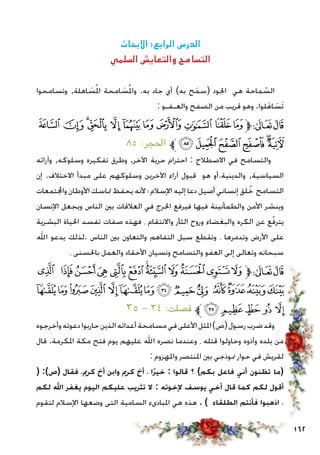 الدرس الرابع: الأبحاث
التسامح والتعايش السلمي
السّماحة هي الجود (سمَح به) أي جاد به. والمُسَامَحة المُسَاهَلة، وتسامحوا
تَسَاهَلوا. وهو قريب من الصفح والعـفـو :
قَالَ تَعَالَىٰ: ﴿ وَمَا خَلَقْنَا ٱلسَّمَٰوَٰتِ وَٱلْأَرْضَ وَمَا بَيْنَهُمَآ إِلَّا بِٱلْحَقِّ ۗ وَإِنَّ ٱلسَّاعَةَ
لَـَٔاتِيَةٌ ۖ فَٱصْفَحِ ٱلصَّفْحَ ٱلْجَمِيلَ ﴿٨٥﴾ الحجر: ٨٥
والتسامح في الاصطلاح : احترام حرية الآخر، وطرق تفكيره وسلوكه، وآرائه
السياسية، والدينية.أو هو قبول آراء الآخرين وسلوكهم على مبدأ الاختلاف. إن
التسامح خُلق إنساني أصيل دعا إليه الإسلام؛ لأنه يحفظ تماسك الأوطان والمجتمعات
وينشر الأمن والطمأنينة فيها فيرفع الحرج في العلاقات بين الناس ويجعل الإنسان
يترفّع عن الكره والبغضاء وروح الثأر والانتقام . فهذه صفات تفسد الحياة البشرية
على الأرض وتدمرها . وتقطع سبل التفاهم والتعاون بين الناس ،لذلك يدعو الله
سبحانه وتعالى إلى العفو والتسامح ونسيان الأحقاد والعمل بالحسنى .
قَالَ تَعَالَىٰ: ﴿ وَلَا تَسْتَوِى ٱلْحَسَنَةُ وَلَا ٱلسَّيِّئَةُ ۚ ٱدْفَعْ بِٱلَّتِى هِىَ أَحْسَنُ فَإِذَا ٱلَّذِى
بَيْنَكَ وَبَيْنَهُۥ عَدَٰوَةٌ كَأَنَّهُۥ وَلِىٌّ حَمِيمٌ ﴿٣٤﴾ وَمَا يُلَقَّىٰهَآ إِلَّا ٱلَّذِينَ صَبَرُوا۟ وَمَا يُلَقَّىٰهَآ
إِلَّا ذُو حَظٍّ عَظِيمٍ ﴿٣٥﴾ فصلت: ٣٤ - ٣٥
وقد ضرب رسول (ص) المثل الأعلى في مسامحة أعدائه الذين حاربوا دعوته وأخرجوه
من بلده وآذوه وحاولوا قتله . وعندما نصره الله عليهم يوم فتح مكة المكرمة، قال
لقريش في حوار نموذجي بين المنتصر والمهزوم :
(ما تظنون أني فاعل بكم) ؟ قالوا : خيرًا . أخ كريم وابن أخ كريم. فقال (ص): (
أقول لكم كما قال أخي يوسف لإخوته : لا تثريب عليكم اليوم يغفر الله لكم
. اذهبوا فأنتم الطلقاء ) . هذه هي المبادىء السامية التى وضعها الإسلام لتقوم
١٦٢